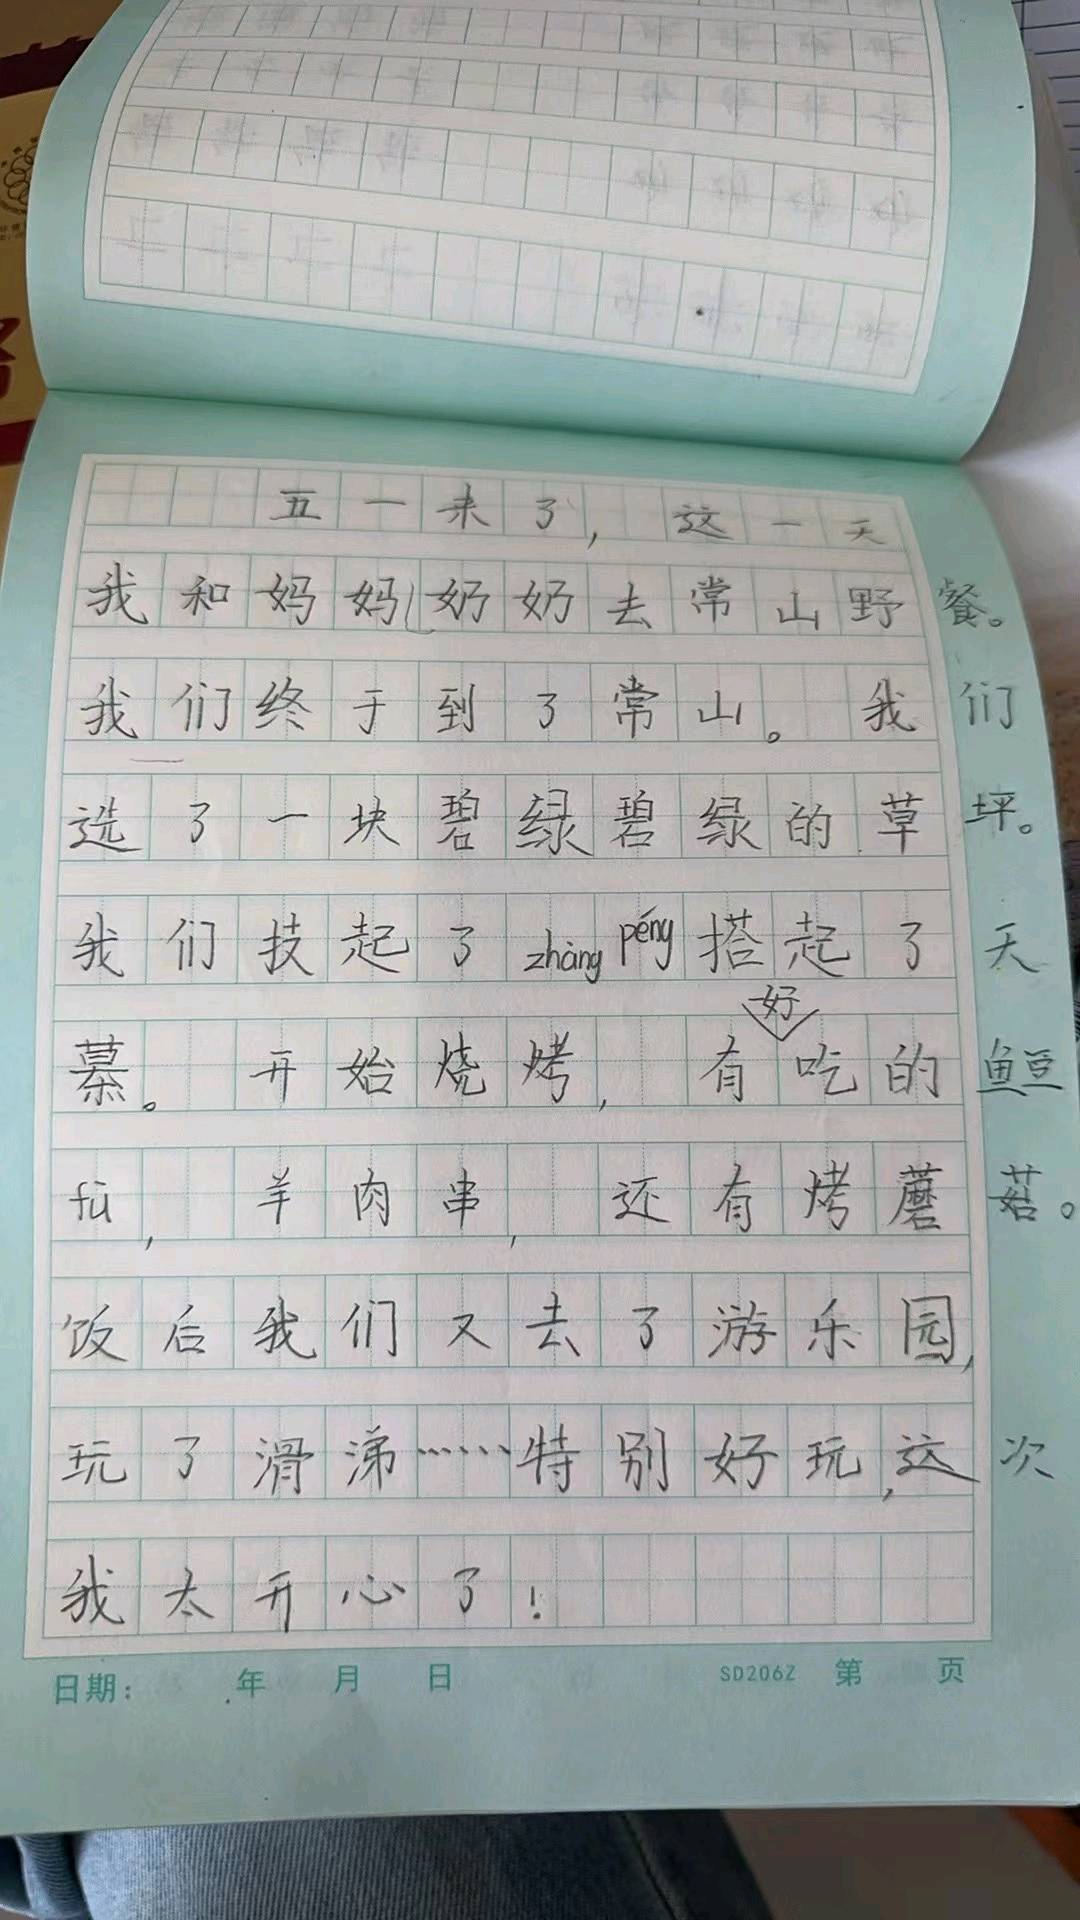 五一来了，这一天
我和妈妈奶奶去常山野餐。
我们终于到了常山。我们
选了一块碧绿碧绿的草坪。
我们技起了zhàng péng搭起了天
幕。开始烧烤，有好吃的鱼豆
fǔ，羊肉串，还有烤蘑菇。
饭后我们又去了游乐园，
玩了滑涕……特别好玩，这次
我太开心了！
日期： 年 月 日 SD206Z 第 页